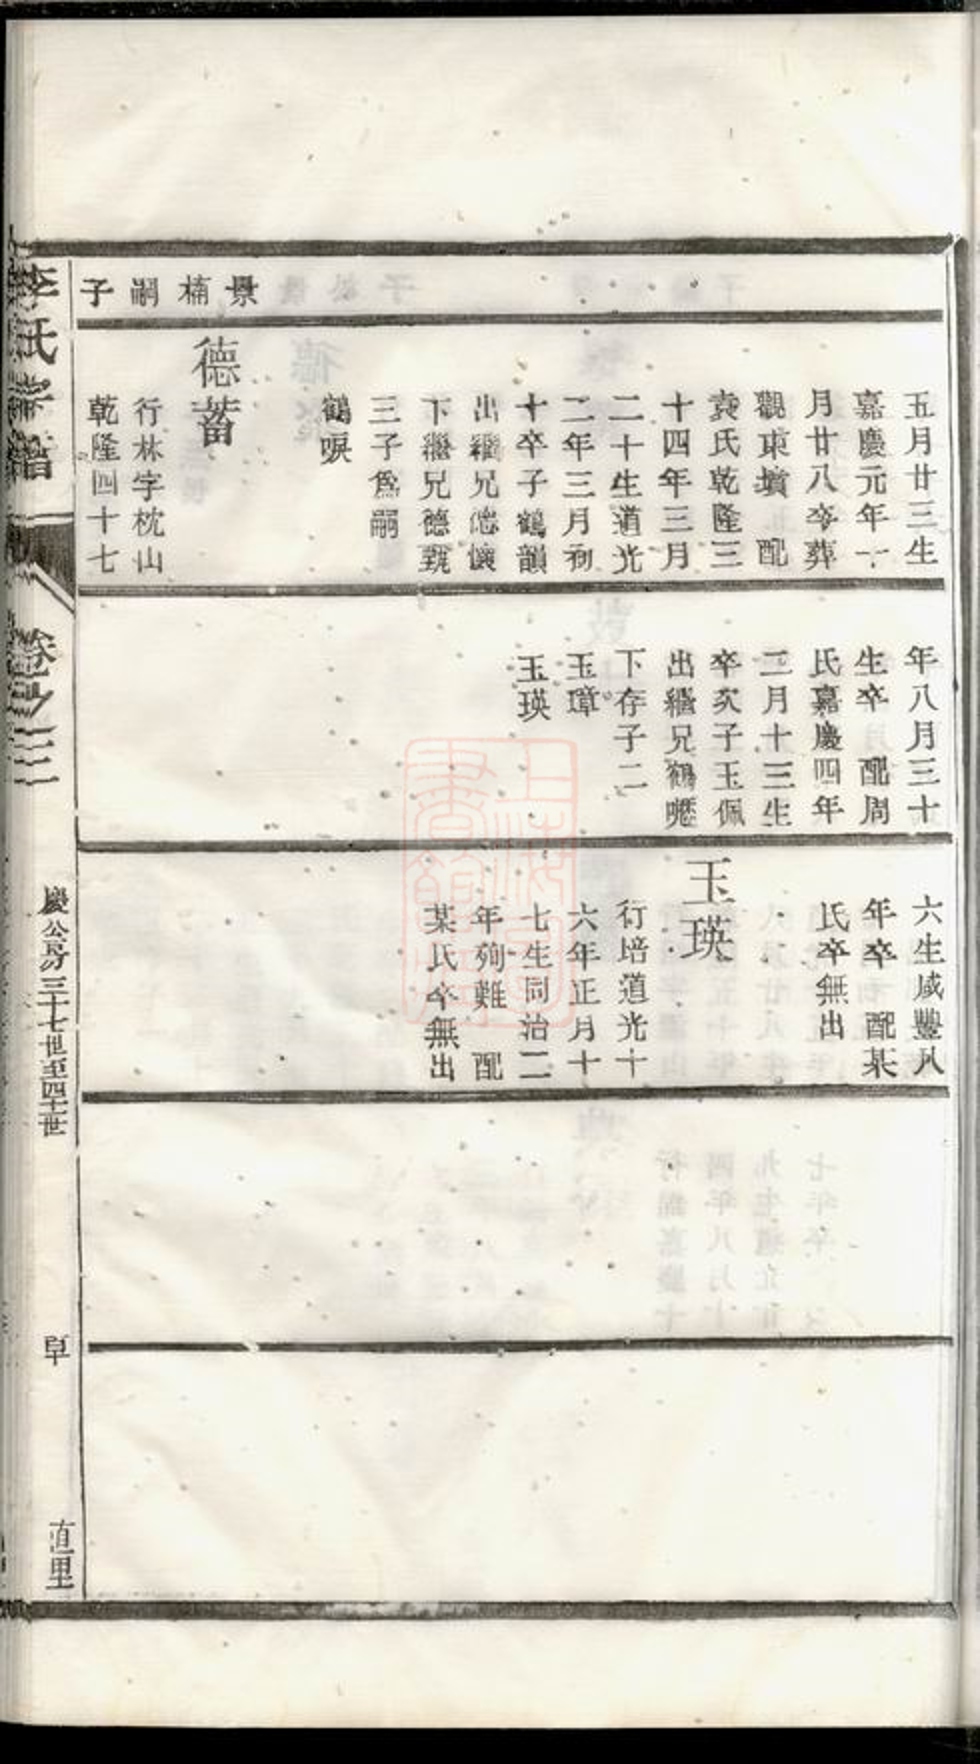 景楠嗣子
五月廿三生
嘉慶元年一
月廿八卒葬
觀東墳　配
袁氏乾隆三
十四年三月
二十生道光
二年三月初
十卒子鶴韻
出繼兄德懷
下繼兄德甄
三子為嗣
鶴唳
德蓄
行林字枕山
乾隆四十七
年八月三十
生卒　配周
氏嘉慶四年
二月十三生
卒亥子玉佩
出繼兄鶴
下存子二
玉璋
玉瑛
六生咸豐八
年卒　配某
氏卒無出
玉瑛
行培道光十
六年正月十
七生同治二
年殉難　配
某氏卒無出
李氏譜
卷之三
慶公房三十七世至四十一世
直里
上海圖書館藏